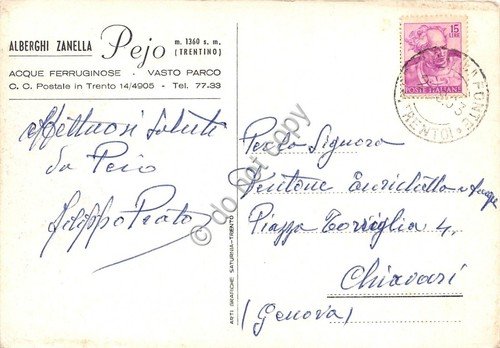 ALBERGHI ZANELLA Pejo m. 1360 s. m. (TRENTINO)
ACQUE FERRUGINOSE - VASTO PARCO
C. C. Postale in Trento 14/4905 - Tel. 77.33
15 LIRE
POSTE ITALIANE
Affettuosi saluti
da Peio
Filippo Prato
Per la Signora
Pentone
Piazza Torriglia 4,
Chiavari
(Genova)
ARTI GRAFICHE SATURNIA-TRENTO
do not copy